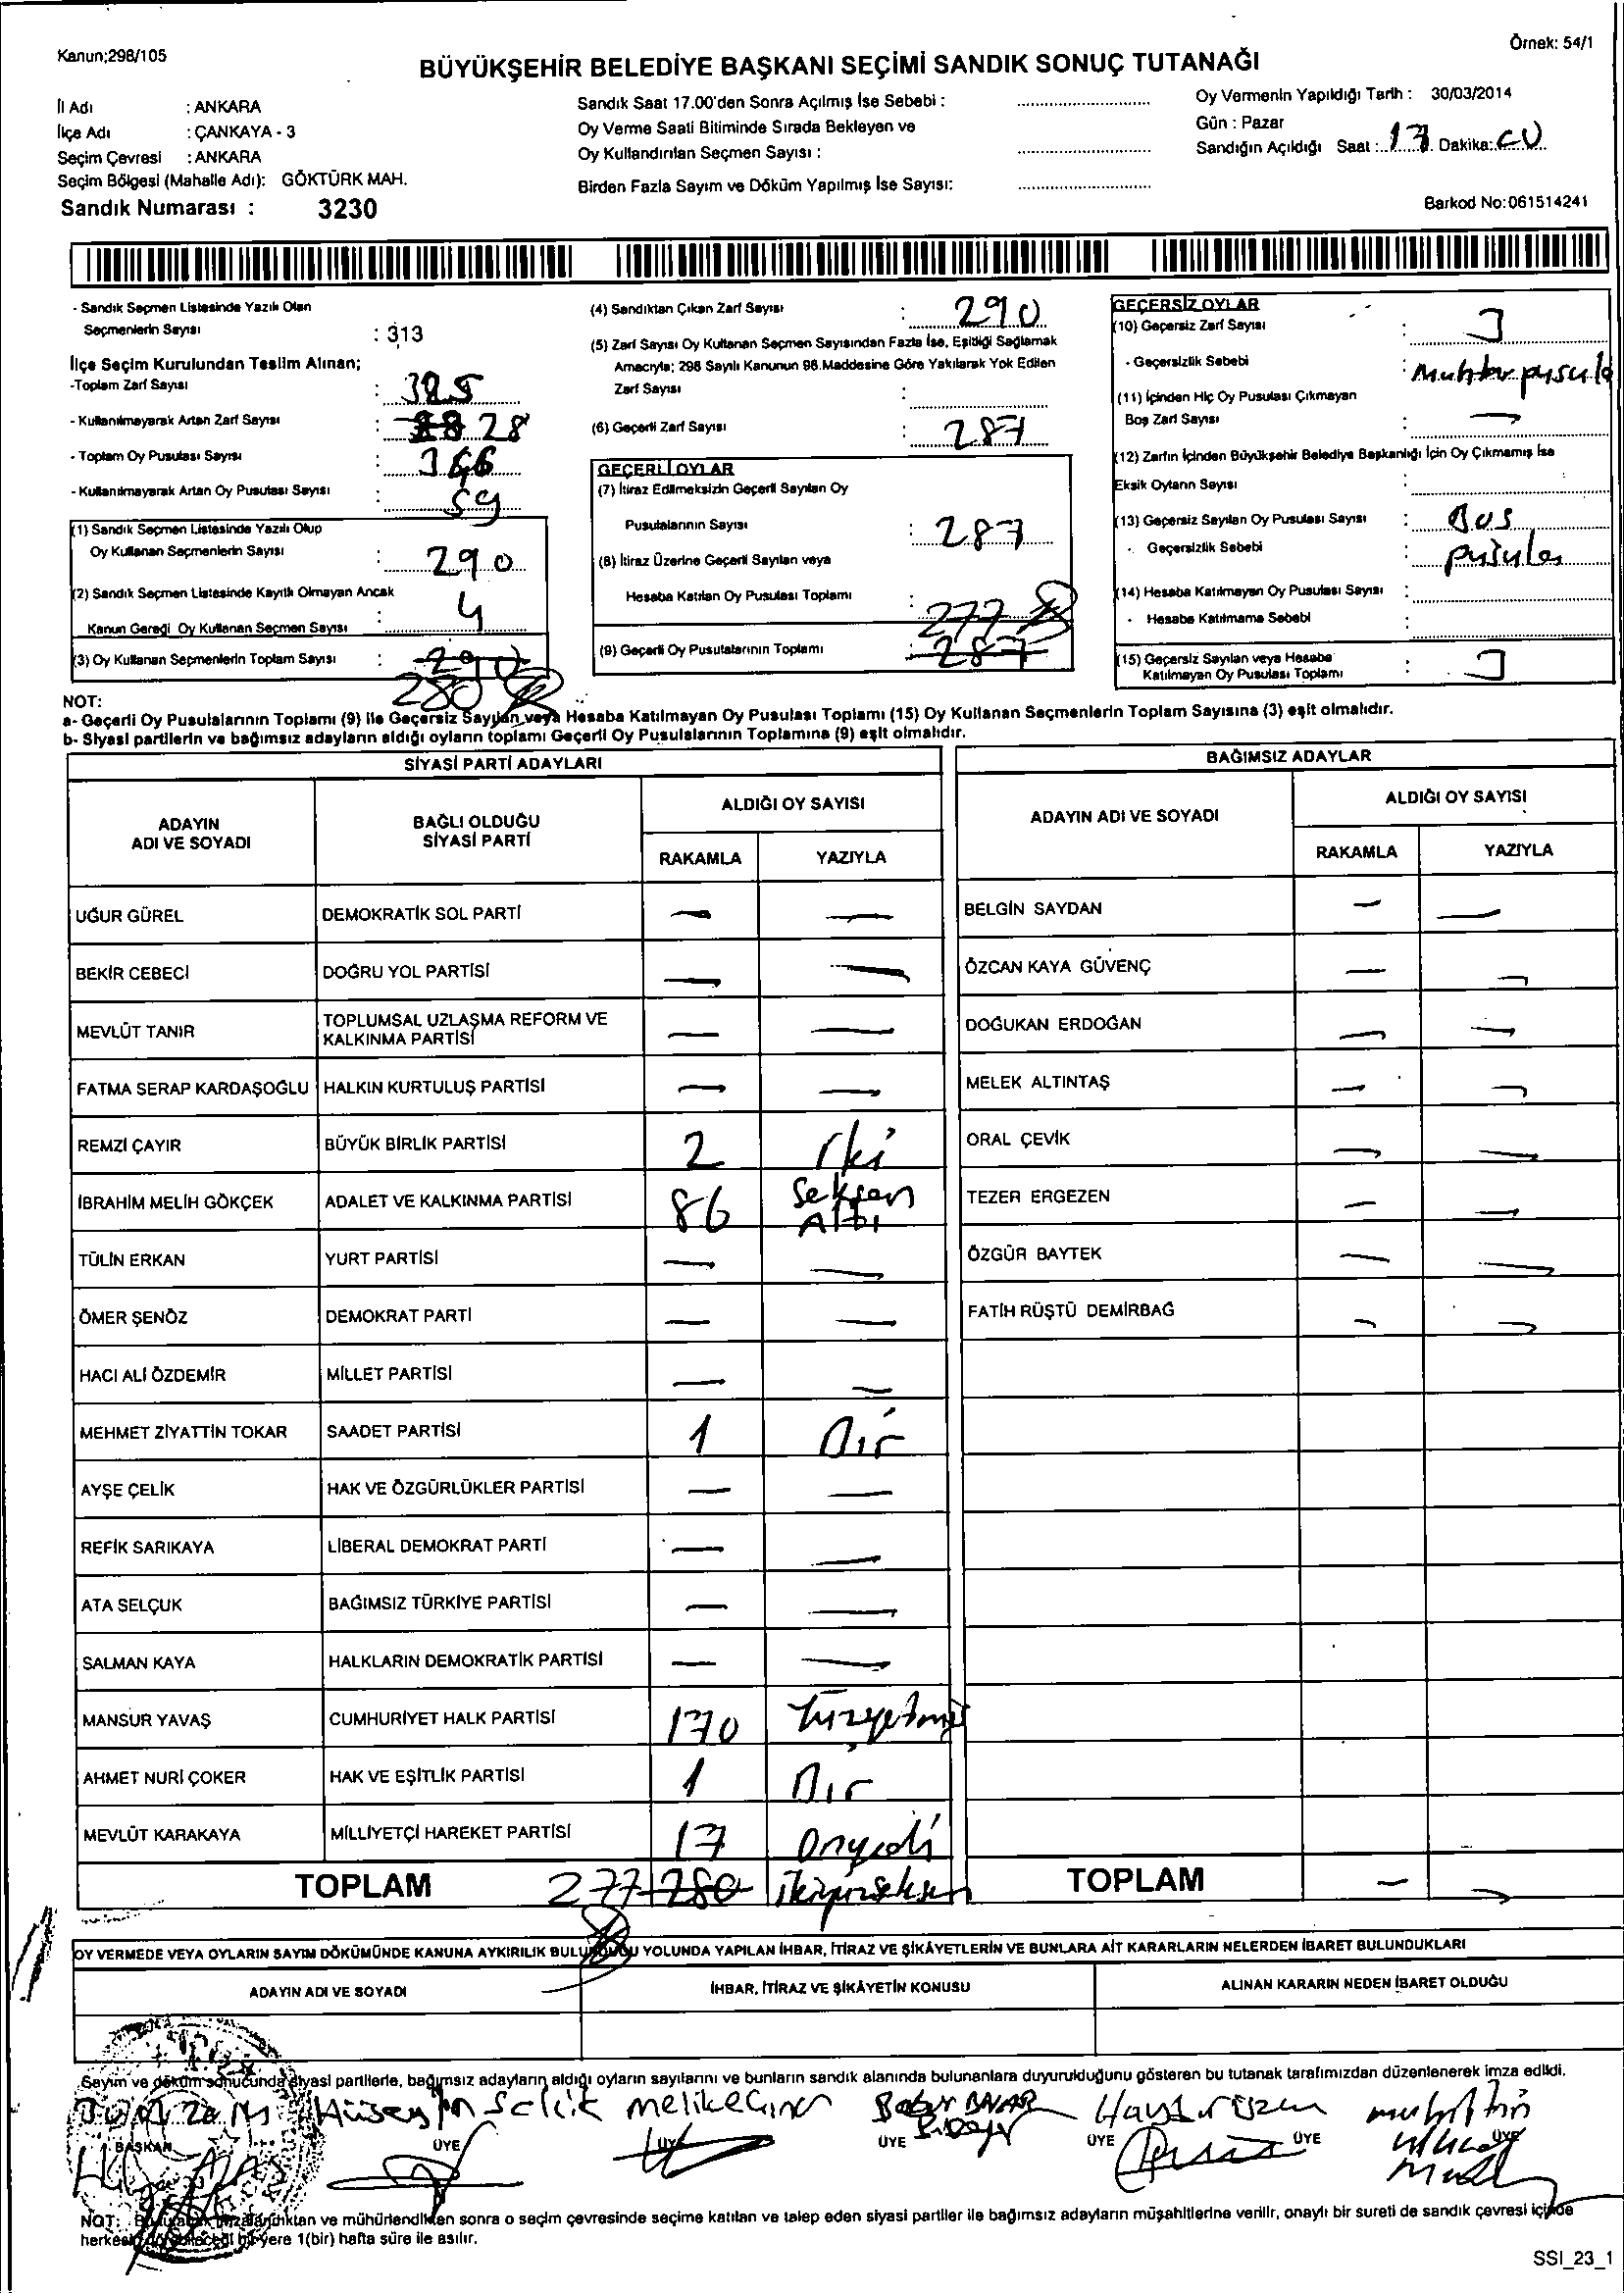 Kanun;298/105
Örnek: 54/1
BÜYÜKŞEHİR BELEDİYE BAŞKANI SEÇİMİ SANDIK SONUÇ TUTANAĞI
İl Adı : ANKARA
İlçe Adı : ÇANKAYA - 3
Seçim Çevresi : ANKARA
Seçim Bölgesi (Mahalle Adı): GÖKTÜRK MAH.
Sandık Numarası : 3230
Sandık Saat 17.00'den Sonra Açılmış İse Sebebi :
Oy Verme Saati Bitiminde Sırada Bekleyen ve
Oy Kullandırılan Seçmen Sayısı :
Birden Fazla Sayım ve Döküm Yapılmış İse Sayısı:
Oy Vermenin Yapıldığı Tarih : 30/03/2014
Gün : Pazar
Sandığın Açıldığı Saat : 17 Dakika:
Barkod No:061514241
- Sandık Seçmen Listesinde Yazılı Olan
Seçmenlerin Sayısı : 313
İlçe Seçim Kurulundan Teslim Alınan;
-Toplam Zarf Sayısı : 325
- Kullanılmayarak Artan Zarf Sayısı : 28
- Toplam Oy Pusulası Sayısı : 366
- Kullanılmayarak Artan Oy Pusulası Sayısı : 59
(1) Sandık Seçmen Listesinde Yazılı Olup
Oy Kullanan Seçmenlerin Sayısı : 290
(2) Sandık Seçmen Listesinde Kayıtlı Olmayan Ancak
Kanun Gereği Oy Kullanan Seçmen Sayısı : 4
(3) Oy Kullanan Seçmenlerin Toplam Sayısı : 290
280
(4) Sandıktan Çıkan Zarf Sayısı : 290
(5) Zarf Sayısı Oy Kullanan Seçmen Sayısından Fazla İse, Eşitliği Sağlamak
Amacıyla; 298 Sayılı Kanunun 98.Maddesine Göre Yakılarak Yok Edilen
Zarf Sayısı :
(6) Geçerli Zarf Sayısı : 287
GEÇERLİ OYLAR
(7) İtiraz Edilmeksizin Geçerli Sayılan Oy
Pusulalarının Sayısı : 287
(8) İtiraz Üzerine Geçerli Sayılan veya
Hesaba Katılan Oy Pusulası Toplamı : 277
(9) Geçerli Oy Pusulalarının Toplamı : 287
GEÇERSİZ OYLAR
(10) Geçersiz Zarf Sayısı :
- Geçersizlik Sebebi : Muhtar pusula
(11) İçinden Hiç Oy Pusulası Çıkmayan
Boş Zarf Sayısı : —
(12) Zarfın İçinden Büyükşehir Belediye Başkanlığı İçin Oy Çıkmamış İse
Eksik Oyların Sayısı :
(13) Geçersiz Sayılan Oy Pusulası Sayısı : Bos
- Geçersizlik Sebebi : pusula
(14) Hesaba Katılmayan Oy Pusulası Sayısı :
- Hesaba Katılmama Sebebi :
(15) Geçersiz Sayılan veya Hesaba
Katılmayan Oy Pusulası Toplamı :
NOT:
a- Geçerli Oy Pusulalarının Toplamı (9) ile Geçersiz Sayılan veya Hesaba Katılmayan Oy Pusulası Toplamı (15) Oy Kullanan Seçmenlerin Toplam Sayısına (3) eşit olmalıdır.
b- Siyasi partilerin ve bağımsız adayların aldığı oyların toplamı Geçerli Oy Pusulalarının Toplamına (9) eşit olmalıdır.
SİYASİ PARTİ ADAYLARI
ADAYIN ADI VE SOYADI
BAĞLI OLDUĞU SİYASİ PARTİ
ALDIĞI OY SAYISI
RAKAMLA YAZIYLA
UĞUR GÜREL DEMOKRATİK SOL PARTİ — —
BEKİR CEBECİ DOĞRU YOL PARTİSİ — —
MEVLÜT TANIR TOPLUMSAL UZLAŞMA REFORM VE KALKINMA PARTİSİ — —
FATMA SERAP KARDAŞOĞLU HALKIN KURTULUŞ PARTİSİ — —
REMZİ ÇAYIR BÜYÜK BİRLİK PARTİSİ 2 İki
İBRAHİM MELİH GÖKÇEK ADALET VE KALKINMA PARTİSİ 86 Seksen Altı
TÜLİN ERKAN YURT PARTİSİ — —
ÖMER ŞENÖZ DEMOKRAT PARTİ — —
HACI ALİ ÖZDEMİR MİLLET PARTİSİ — —
MEHMET ZİYATTİN TOKAR SAADET PARTİSİ 1 Bir
AYŞE ÇELİK HAK VE ÖZGÜRLÜKLER PARTİSİ — —
REFİK SARIKAYA LİBERAL DEMOKRAT PARTİ — —
ATA SELÇUK BAĞIMSIZ TÜRKİYE PARTİSİ — —
SALMAN KAYA HALKLARIN DEMOKRATİK PARTİSİ — —
MANSUR YAVAŞ CUMHURİYET HALK PARTİSİ 170 Yüzyetmiş
AHMET NURİ ÇOKER HAK VE EŞİTLİK PARTİSİ 1 Bir
MEVLÜT KARAKAYA MİLLİYETÇİ HAREKET PARTİSİ 17 Onyedi
TOPLAM 277 280 ikiyüzseksen
BAĞIMSIZ ADAYLAR
ADAYIN ADI VE SOYADI
ALDIĞI OY SAYISI
RAKAMLA YAZIYLA
BELGİN SAYDAN — —
ÖZCAN KAYA GÜVENÇ — —
DOĞUKAN ERDOĞAN — —
MELEK ALTINTAŞ — —
ORAL ÇEVİK — —
TEZER ERGEZEN — —
ÖZGÜR BAYTEK — —
FATİH RÜŞTÜ DEMİRBAĞ — —
TOPLAM — —
OY VERMEDE VEYA OYLARIN SAYIM DÖKÜMÜNDE KANUNA AYKIRILIK BULUNDUĞU YOLUNDA YAPILAN İHBAR, İTİRAZ VE ŞİKÂYETLERİN VE BUNLARA AİT KARARLARIN NELERDEN İBARET BULUNDUKLARI
ADAYIN ADI VE SOYADI
İHBAR, İTİRAZ VE ŞİKÂYETİN KONUSU
ALINAN KARARIN NEDEN İBARET OLDUĞU
Sayım ve döküm sonucunda siyasi partilerle, bağımsız adayların aldığı oyların sayılarını ve bunların sandık alanında bulunanlara duyurulduğunu gösteren bu tutanak tarafımızdan düzenlenerek imza edildi.
Hüseyin Selçik
BAŞKAN ÜYE ÜYE ÜYE ÜYE ÜYE ÜYE
NOT: Bu tutanak imzalandıktan ve mühürlendikten sonra o seçim çevresinde seçime katılan ve talep eden siyasi partiler ile bağımsız adayların müşahitlerine verilir, onaylı bir sureti de sandık çevresi içinde
herkesin görebileceği bir yere 1(bir) hafta süre ile asılır.
SSI_23_1